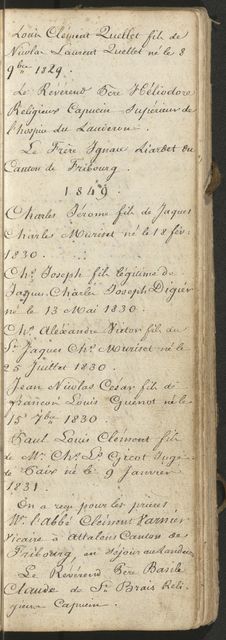 Louis Clément Quellet fils de
Nicolas Laurent Quellet né le 8
9bre 1829.
Le Révérend Père Héliodore
Religieux Capucin Supérieur de
l'hospice du Landeron.
Le Frère Ignace Liardet du
Canton de Fribourg.
1849.
Charles Jérome fils de Jaques
Charles Muriset né le 18 fév.
1830.
Chs Joseph fils légitime de
Jaques Charles Joseph Digier
né le 13 Mai 1830.
Chs Alexandre Victor fils de
St Jaques Chs Muriset né le
25 Juillet 1830.
Jean Nicolas Cesar fils de
François Louis Guenot né le
15 7bre 1830.
Paul Louis Clément fils
de Mr Chs Ls Gicot Juge
de Paix né le 9 Janvier
1831.
On a reçu pour les prières
Mr l'Abbé Clément
Vicaire à Attalens Canton de
Fribourg, en séjour au Landeron
Le Révérend Père Basile
Claude de St Brais Reli-
gieux Capucin.